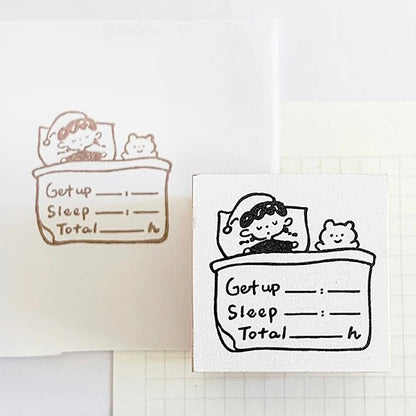 Get up __:__
Sleep __:__
Total ____ h
Get up __:__
Sleep __:__
Total ____ h